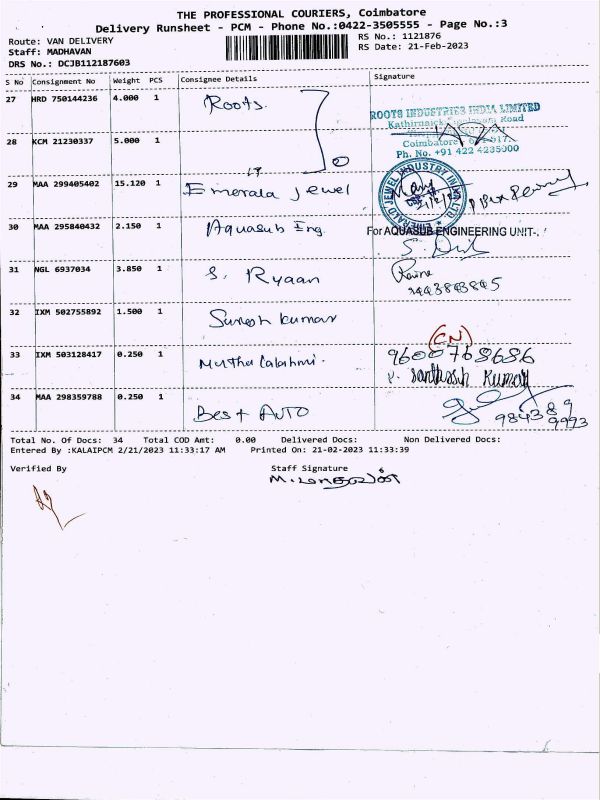 THE PROFESSIONAL COURIERS, Coimbatore
Delivery Runsheet - PCM - Phone No.:0422-3505555 - Page No.:3
Route: VAN DELIVERY
RS No.: 1121876
Staff: MADHAVAN
RS Date: 21-Feb-2023
DRS No.: DCJB112187603
S No Consignment No Weight PCS Consignee Details Signature
27 HRD 750144236 4.000 1 Roots
ROOTS INDUSTRIES INDIA LIMITED
28 KCM 21230337 5.000 1
Coimbatore
Ph. No. +91 422 4235000
29 MAA 299405402 15.120 1 Emerala Jewel
EMERALD JEWEL INDUSTRY INDIA LTD.
30 MAA 295840432 2.150 1 Aquasub Eng
For AQUASUB ENGINEERING UNIT-
31 NGL 6937034 3.850 1 S. Ryaan
32 IXM 502755892 1.500 1 Suresh kumar
(CN)
33 IXM 503128417 0.250 1 Muthalalahmi.
9600768686
Santhosh Kumar
34 MAA 298359788 0.250 1 Best AUTO
984389
9993
Total No. Of Docs: 34 Total COD Amt: 0.00 Delivered Docs: Non Delivered Docs:
Entered By :KALAIPCM 2/21/2023 11:33:17 AM Printed On: 21-02-2023 11:33:39
Verified By Staff Signature
ம.மாதவன்